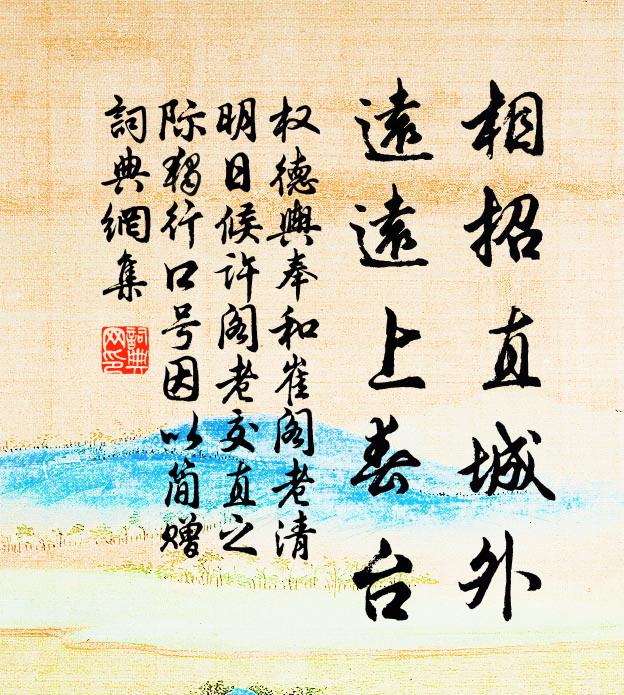 相招直城外
遠遠上春台
权德輿奉和崔阁老清
明日候许阁老交直之
际独行口号因以简赠
詞典網集
詞典
网印